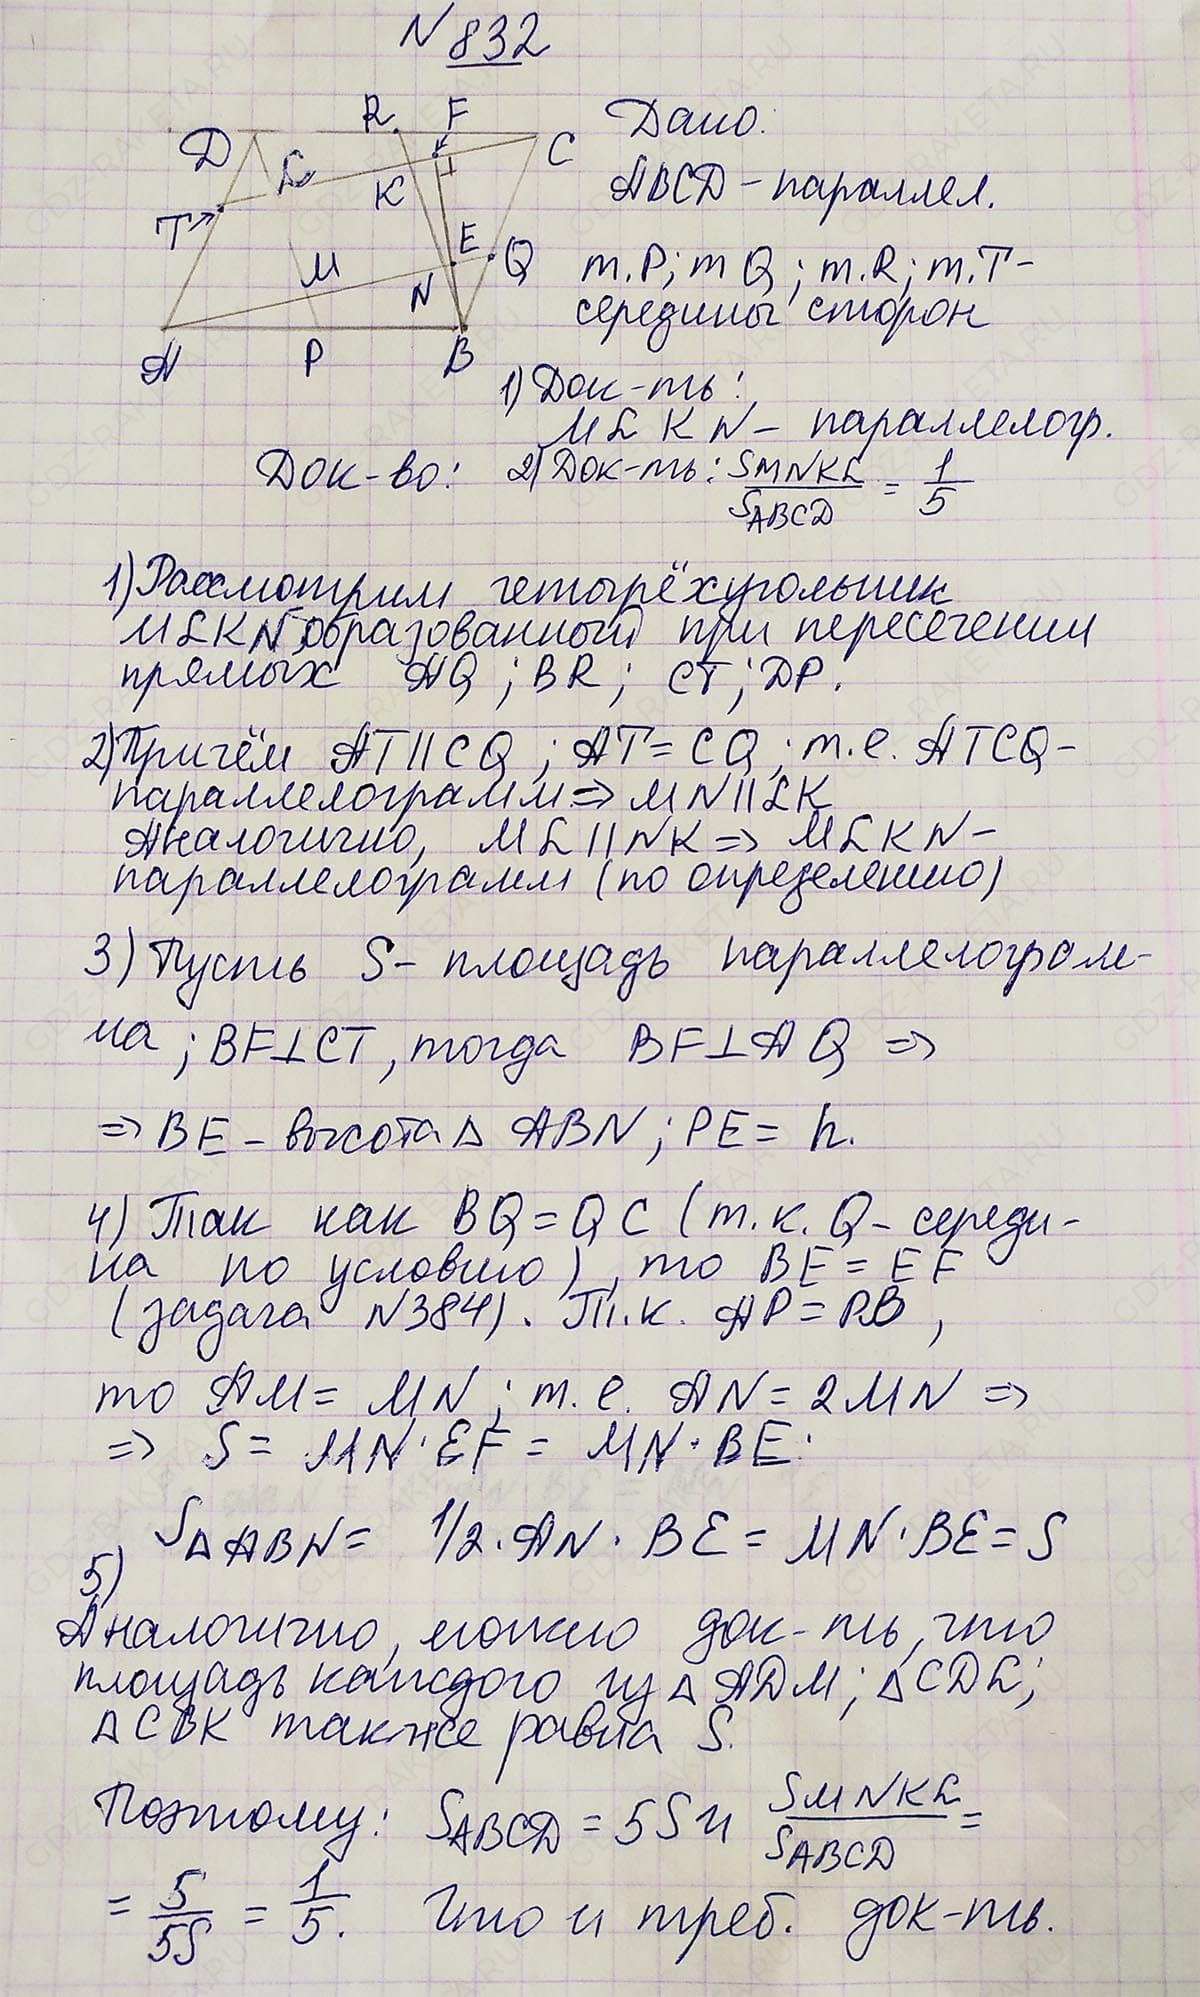 N 832
Д R F C
L K T
M E Q N
А P B
Дано:
ABCD - параллел.
т.P; т Q; т.R; т.T -
середины сторон
1) Док-ть:
MLKN - параллелогр.
Док-во: 2) Док-ть: SMNKL / SABCD = 1/5
1) Рассмотрим четырёхугольник
MLKN, образованный при пересечении
прямых AQ; BR; CT; DP.
2) Причём AT || CQ; AT = CQ; т.е. ATCQ -
параллелограмм => MN || LK
Аналогично, ML || NK => MLKN -
параллелограмм (по определению)
3) Пусть S - площадь параллелограм-
ма; BF⊥CT, тогда BF⊥AQ =>
=> BE - высота △ ABN; PE = h.
4) Так как BQ = QC (т.к. Q - середи-
на по условию), то BE = EF
(задача N384). Т.к. AP = PB,
то AM = MN; т.е. AN = 2MN =>
=> S = MN · EF = MN · BE:
S△ABN = 1/2 · AN · BE = MN · BE = S
5)
Аналогично, можно док-ть, что
площадь каждого из △ ADM; △CDL;
△ CBK также равна S.
Поэтому: SABCD = 5S и SMNKL / SABCD =
= S/5S = 1/5. Что и треб. док-ть.